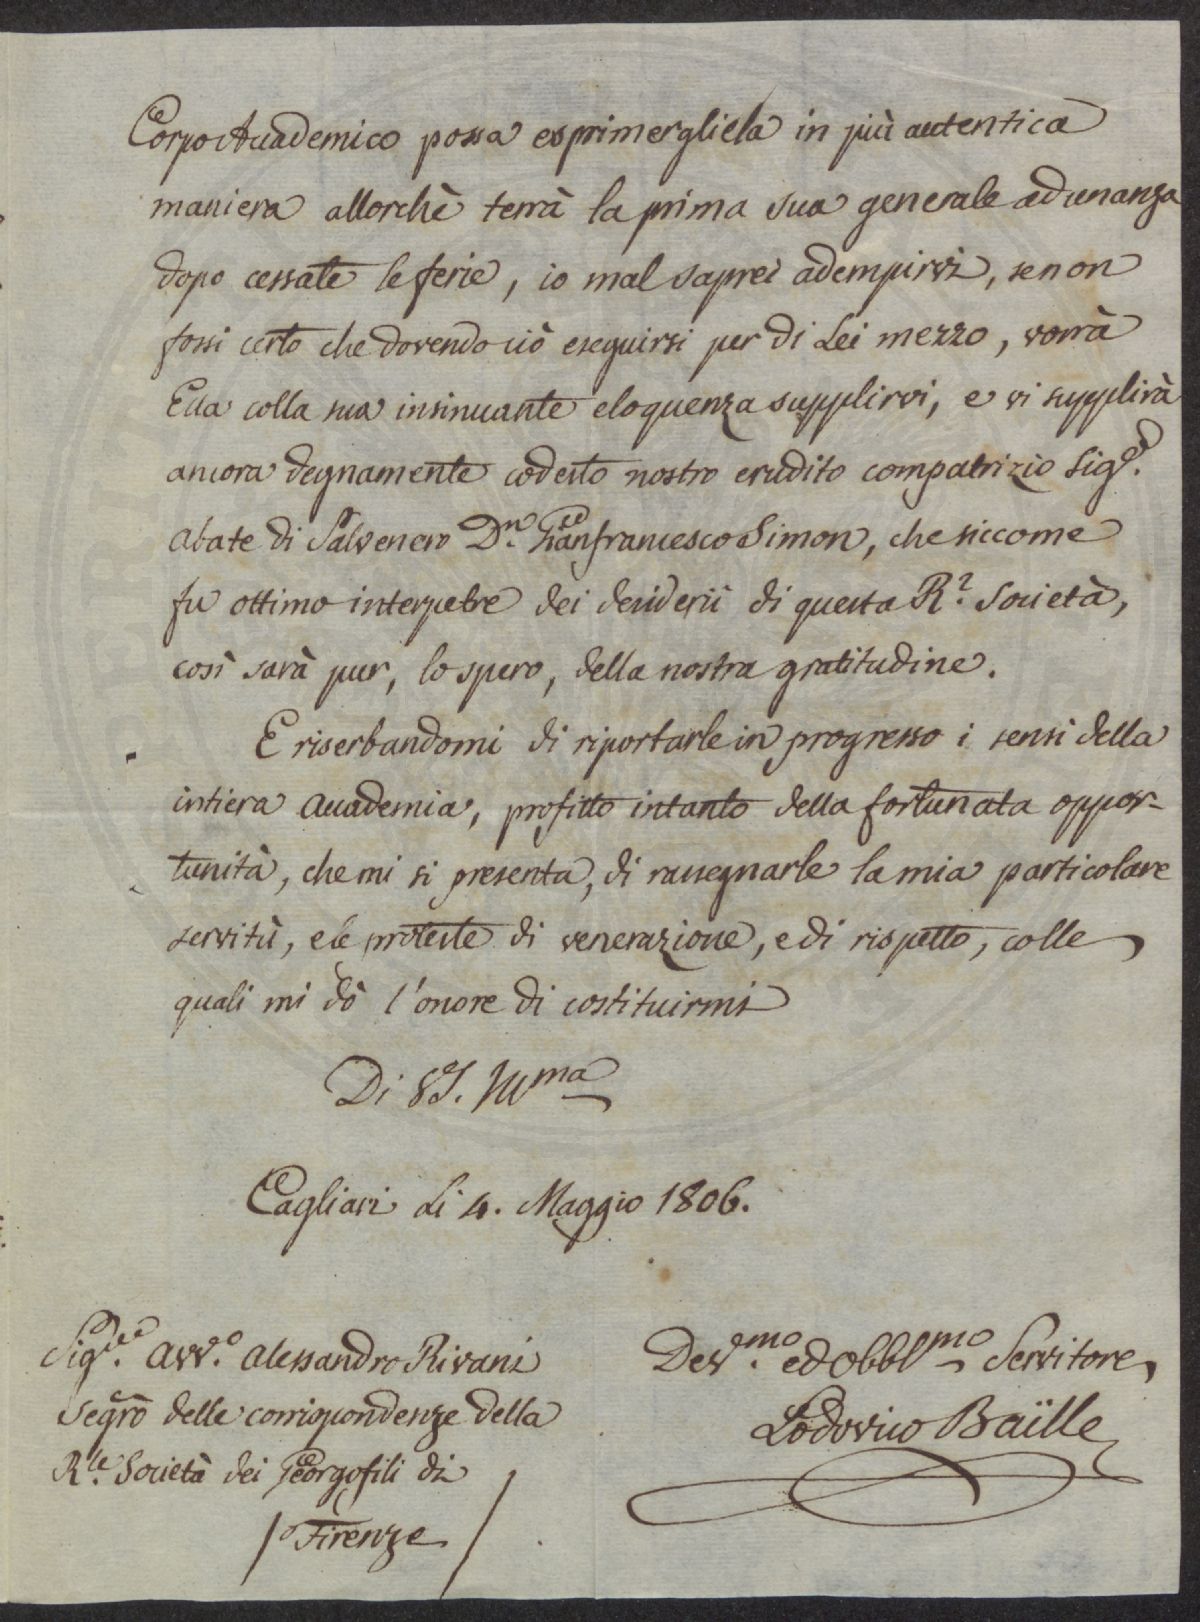 Corpo Accademico possa esprimergliela in più autentica
maniera allorchè terrà la prima sua generale adunanza
dopo cessate le ferie, io mal saprei adempirvi, se non
fossi certo che dovendo ciò eseguirsi per di Lei mezzo, vorrà
Ella colla sua insinuante eloquenza supplirvi, e vi supplirà
ancora degnamente codesto nostro erudito compatrizio Sig.re
Abate di Salvenero D.n Gianfrancesco Simon, che siccome
fu ottimo interpetre dei desiderii di questa R.l Società,
così sarà pur, lo spero, della nostra gratitudine.
E riserbandomi di riportarle in progresso i sensi della
intiera Accademia, profitto intanto della fortunata oppor-
tunità, che mi si presenta, di rassegnarle la mia particolare
servitù, e le proteste di venerazione, e di rispetto, colle
quali mi dò l'onore di costituirmi
Di VS. Ill.ma
Cagliari li 4. Maggio 1806.
Sig.re Avv.o Alessandro Rivani
Segrō delle corrispondenze della
R.le Società dei Georgofili di
/ Firenze /
Dev.mo ed Obbl.mo Servitore
Lodovico Baïlle